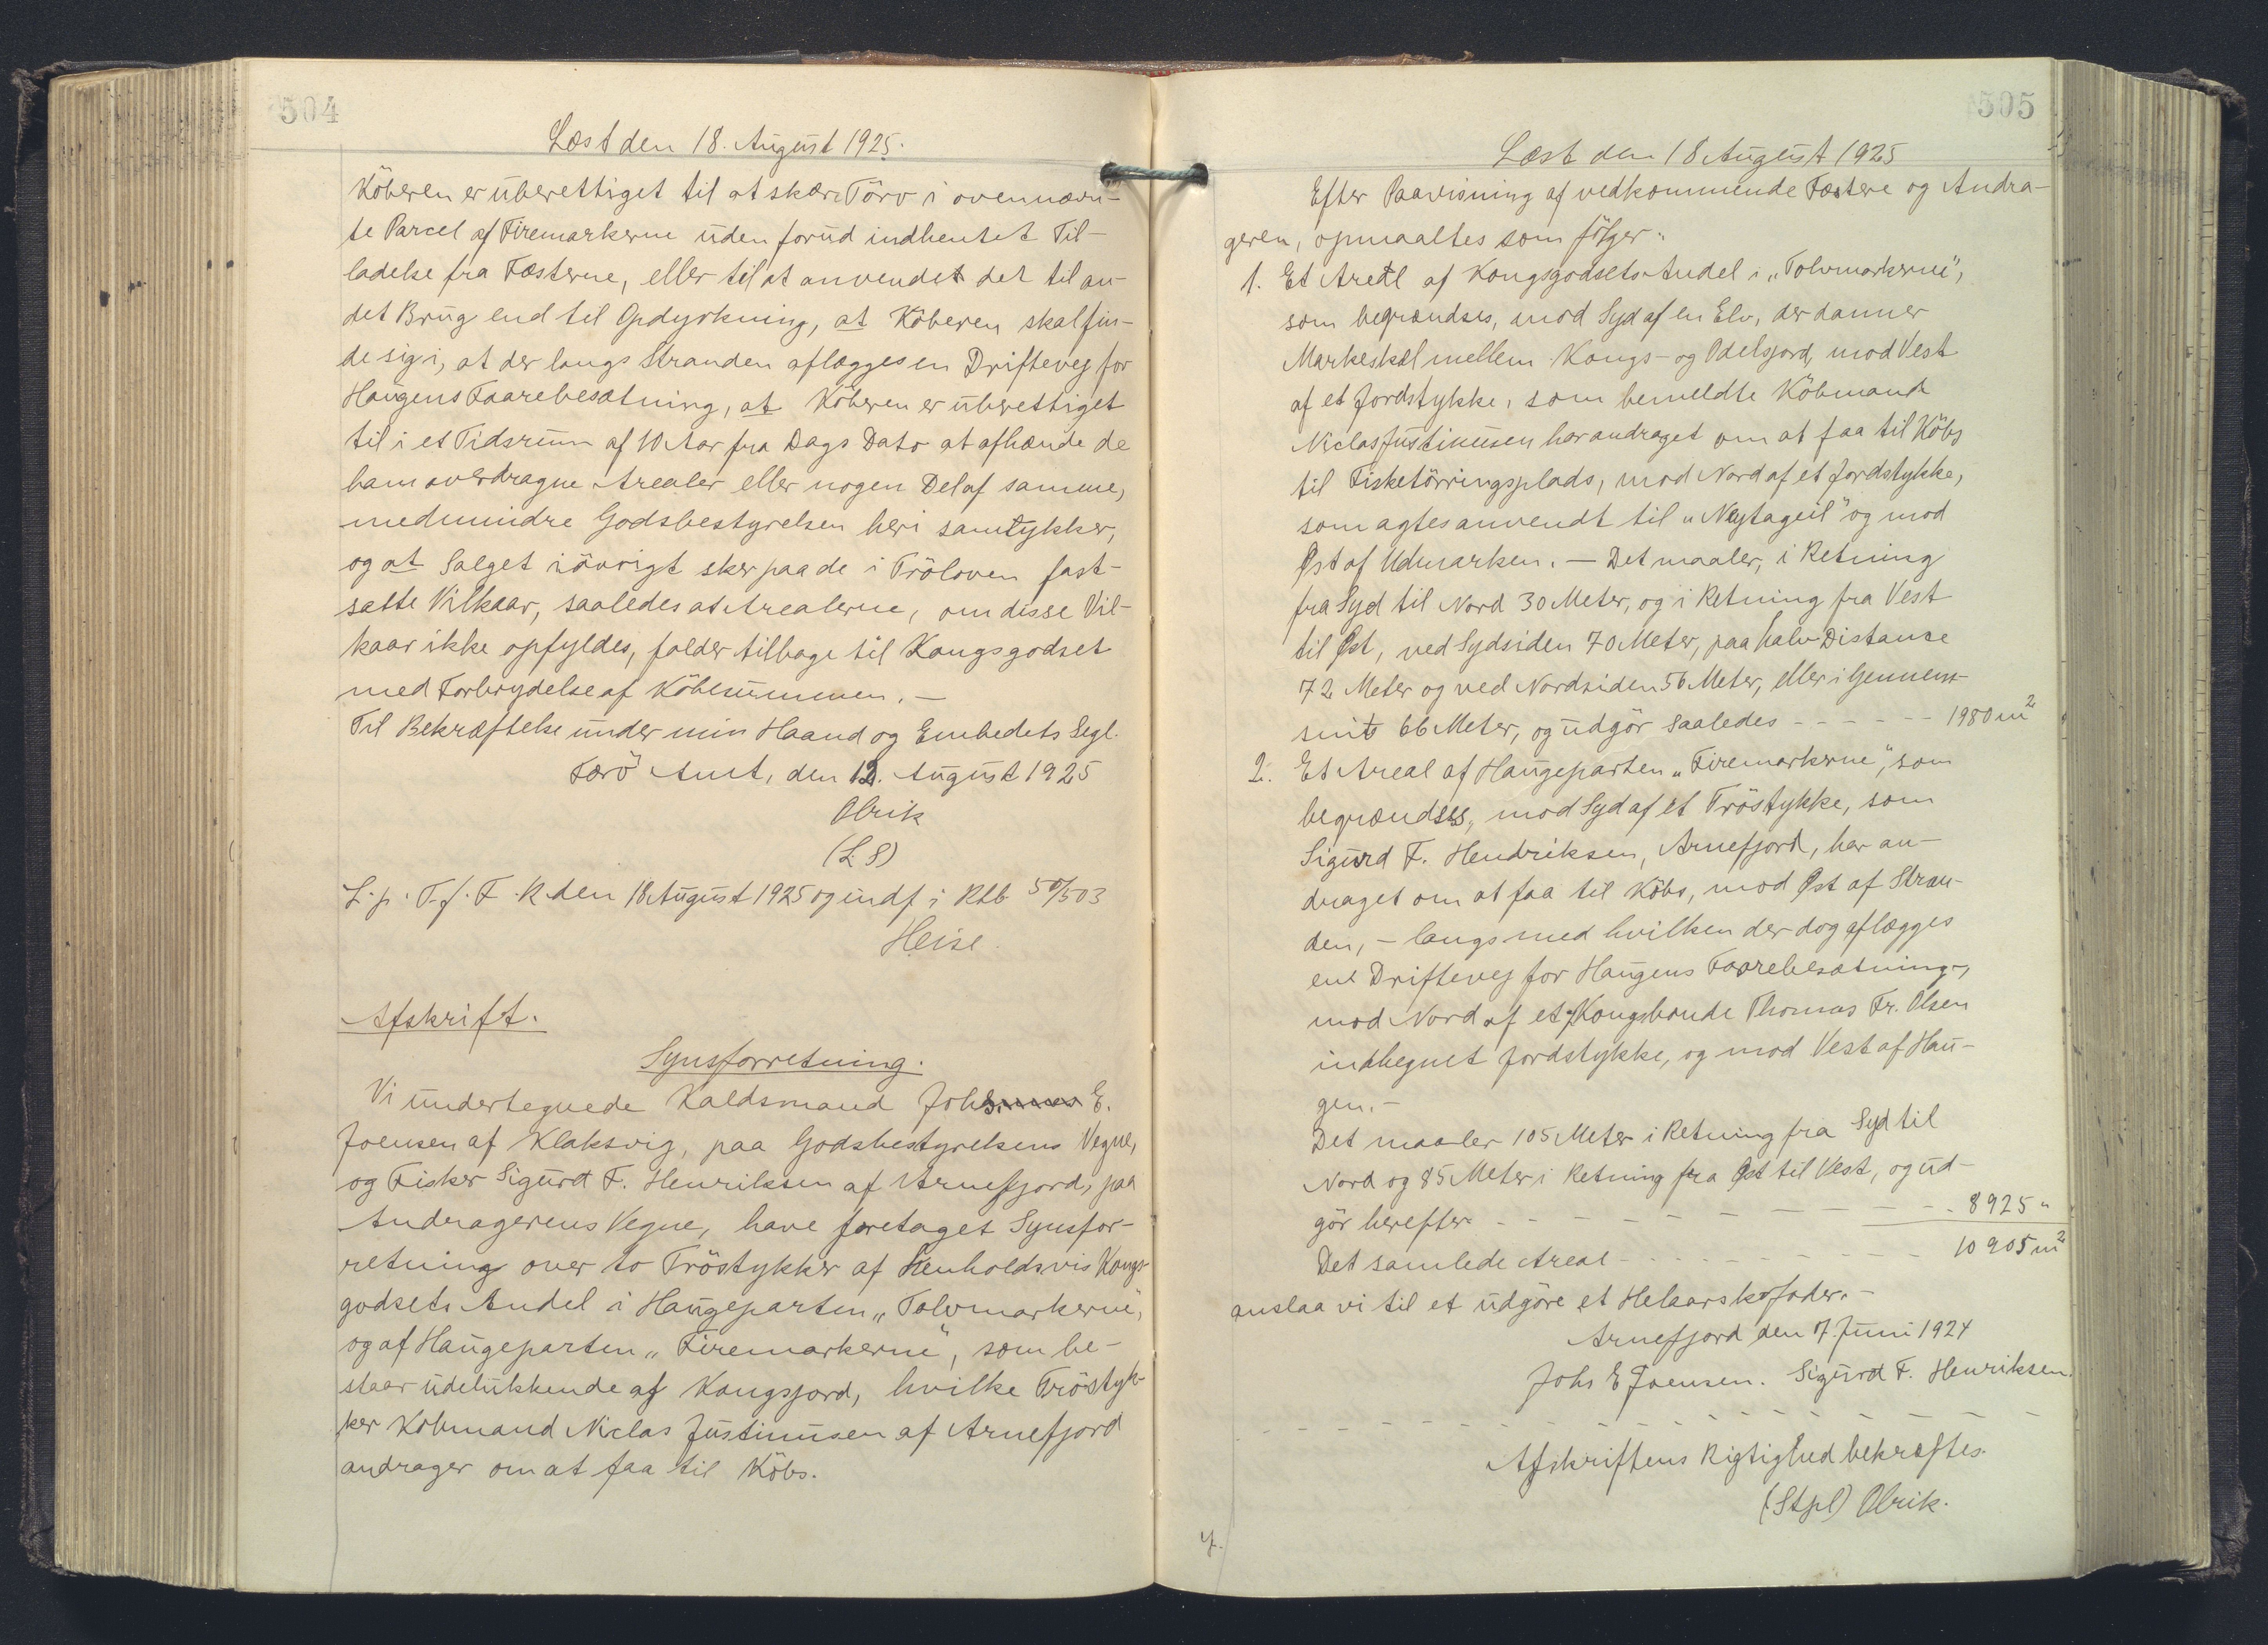 504
Læst den 18. August 1925.
Köberen er uberettiget til at skære Törv i ovennævn-
te Parcel af Firemarkerne uden forud indhentet Til-
ladelse fra Fæsterne, eller til at anvende det til an-
det Brug end til Opdyrkning, at Köberen skal fin-
de sig i, at der langs Stranden aflægges en Driftevej for
Haugens Faarebesætning, at Köberen er uberettiget
til i et Tidsrum af 10 Aar fra Dags Dato at afhænde de
ham overdragne Arealer eller nogen Del af samme,
medmindre Godsbestyrelsen heri samtykker,
og at Salget iövrigt sker paa de i Tröloven fast-
satte Vilkaar, saaledes at Arealerne, om disse Vil-
kaar ikke opfyldes, falder tilbage til Kongsgodset
med Forbrydelse af Köbesummen. —
Til Bekræftelse under min Haand og Embedets Segl.
Færö Amt, den 12. August 1925
Olrik
(L. S)
L. p. T. f. F. R. den 18 August 1925 og indf i Rtb 5⁰/503
Heise.
Afskrift.
Synsforretning.
Vi undertegnede Kaldsmand Johs. E.
Joensen af Klaksvig, paa Godsbestyrelsens Vegne,
og Fisker Sigurd F. Henriksen af Arnefjord, paa
Andragerens Vegne, have foretaget Synsfor-
retning over to Tröstykker af Henholdsvis Kongs-
godsets Andel i Haugeparten „Tolvmarkerne",
og af Haugeparten „Firemarkerne", som be-
staar udelukkende af Kongsjord, hvilke Tröstyk-
ker Köbmand Niclas Justinusen af Arnefjord
andrager om at faa til Köbs.
505
Læst den 18 August 1925
Efter Paavisning af vedkommende Fæstere og Andra-
geren, opmaaltes som fölger:
1. Et Areal af Kongsgodsets Andel i „Tolvmarkerne",
som begrændses, mod Syd af en Elv, der danner
Markeskel mellem Kongs- og Odelsjord, mod Vest
af et Jordstykke, som bemeldte Köbmand
Niclas Justinusen har andraget om at faa til Köbs
til Fisketörringsplads, mod Nord af et Jordstykke,
som agtes anvendt til „Neytageil" og mod
Øst af Udmarken. — Det maaler, i Retning
fra Syd til Nord 30 Meter, og i Retning fra Vest
til Øst, ved Sydsiden 70 Meter, paa halv Distanse
72 Meter og ved Nordsiden 56 Meter, eller i Gennem-
snit 66 Meter, og udgör saaledes - - - - - - 1980 m²
2. Et Areal af Haugeparten „Firemarkerne", som
begrændses, mod Syd af et Tröstykke, som
Sigurd F. Hendriksen, Arnefjord, har an-
draget om at faa til Köbs, mod Øst af Stran-
den, - langs med hvilken der dog aflægges
en Driftevej for Haugens Faarebesætning -,
mod Nord af et Kongsbonde Thomas Fr. Olsen
indhegnet Jordstykke, og mod Vest af Hau-
gen. —
Det maaler 105 Meter i Retning fra Syd til
Nord og 85 Meter i Retning fra Øst til Vest, og ud-
gör herefter - - - - - - - - - - 8925 "
Det samlede Areal - - - - - - - - 10 905 m²
anslaa vi til et udgöre et Helaarskofoder. —
Arnefjord den 7. Juni 1924
Johs E Joensen. Sigurd F. Henriksen.
- - - - - - - - - - - - - - - - - -
Afskriftens Rigtighed bekræftes.
(Stpl) Olrik.